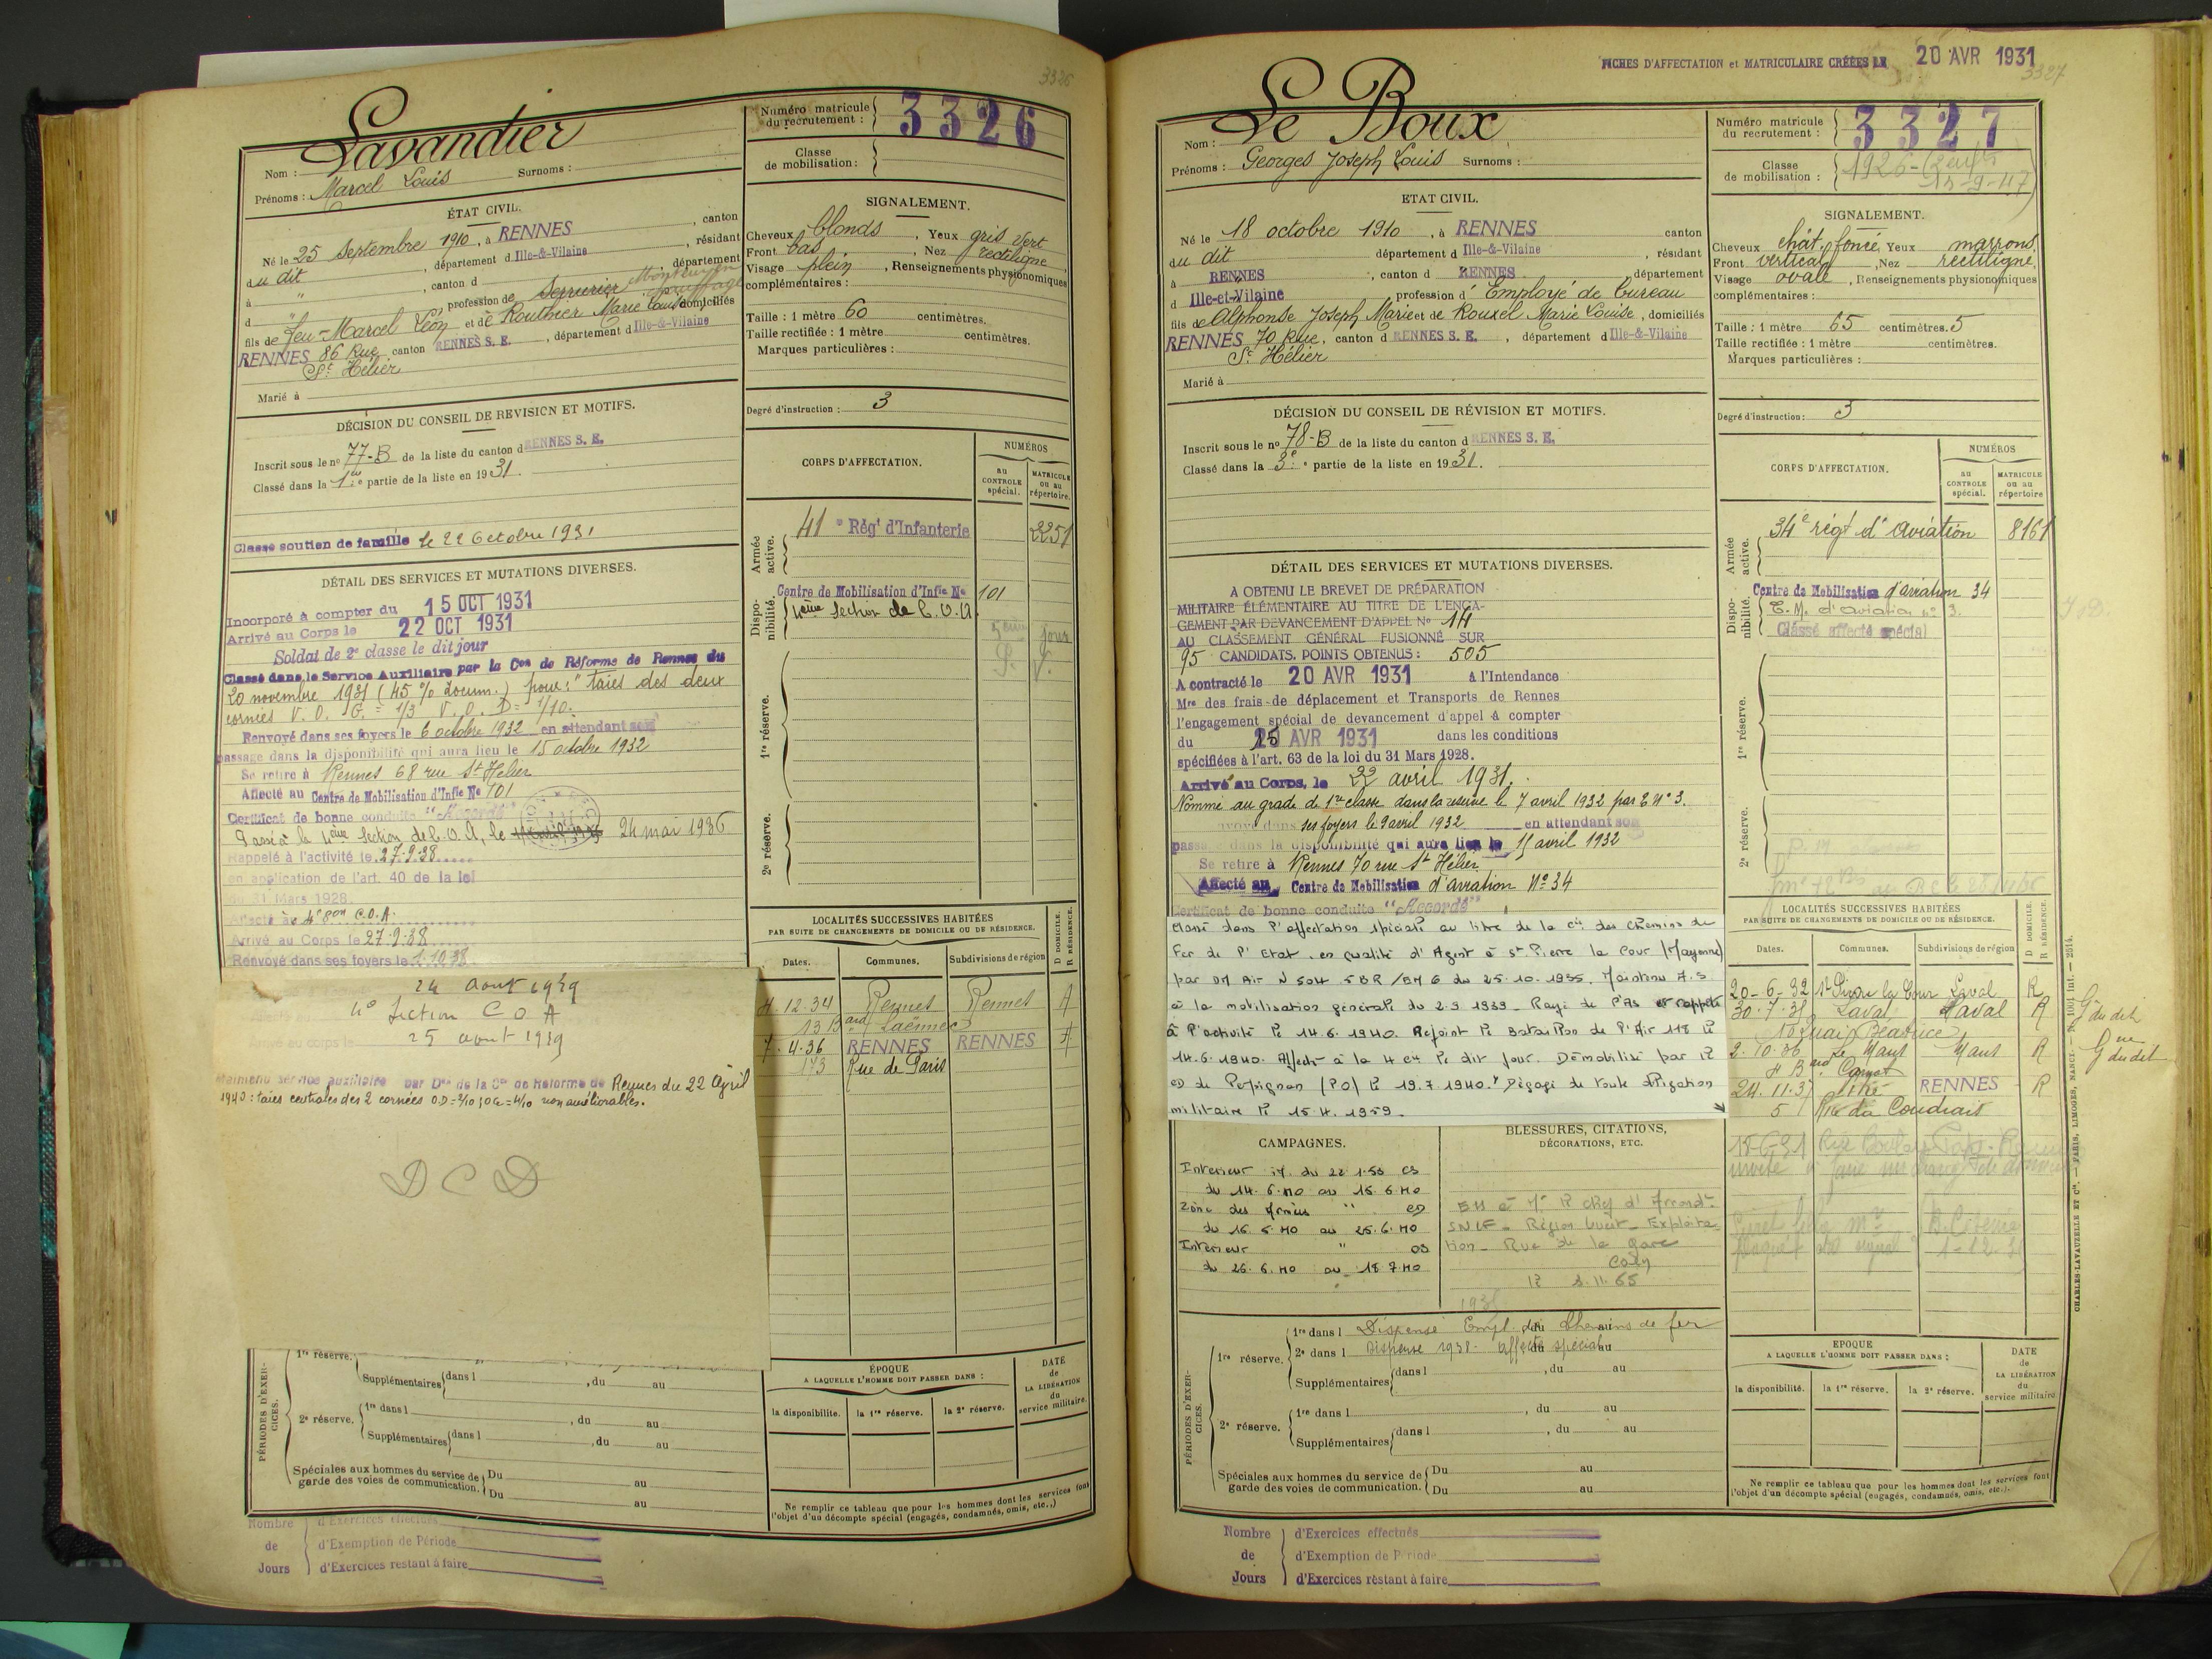 3326
Lavandier
Nom :
Prénoms : Marcel Louis Surnoms :
Numéro matricule du recrutement : 3326
Classe de mobilisation :
ÉTAT CIVIL.
Né le 25 Septembre 1910, à RENNES, canton
du dit, département d Ille-&-Vilaine, résidant
à " , canton d , département
d " , profession de Serrurier Monteur en chauffage
fils de feu Marcel Léon et de Routhier Marie Louise domiciliés
RENNES 86 Rue canton RENNES S. E., département d Ille-&-Vilaine
St Hélier
Marié à
SIGNALEMENT.
Cheveux blonds, Yeux gris vert
Front bas, Nez rectiligne
Visage plein, Renseignements physionomiques
complémentaires :
Taille : 1 mètre 60 centimètres.
Taille rectifiée : 1 mètre centimètres.
Marques particulières :
Degré d'instruction : 3
DÉCISION DU CONSEIL DE REVISION ET MOTIFS.
Inscrit sous le no 77-B de la liste du canton d RENNES S. E.
Classé dans la 1re partie de la liste en 1931.
Classé soutien de famille le 22 Octobre 1931
DÉTAIL DES SERVICES ET MUTATIONS DIVERSES.
Incorporé à compter du 15 OCT 1931
Arrivé au Corps le 22 OCT 1931
Soldat de 2e classe le dit jour
Classé dans le Service Auxiliaire par la Con de Réforme de Rennes du
20 novembre 1931 (45 % docum.) pour : "taies des deux
cornées V. O. G. = 1/3 V. O. D = 1/10.
Renvoyé dans ses foyers le 6 octobre 1932 en attendant son
passage dans la disponibilité qui aura lieu le 15 octobre 1932
Se retire à Rennes 68 rue St Hélier
Affecté au Centre de Mobilisation d'Infie No 101
Certificat de bonne conduite "Accordé"
Passé à la 4ème Section de C.O.A, le 24 mai 1936
Rappelé à l'activité le 27.9.38
en application de l'art. 40 de la loi
du 31 Mars 1928
Affecté à 4e Son C.O.A.
Arrivé au Corps le 27.9.38
Renvoyé dans ses foyers le 1.10.38
24 aout 1939
4e Section C O A
Arrivé au corps le 25 aout 1939
Maintenu service auxiliaire par Don de la Con de Réforme de Rennes du 22 Avril
1940 : taies centrales des 2 cornées O.D = 2/10 ; O.G = 4/10 non améliorables.
D C D
CORPS D'AFFECTATION.
NUMÉROS
au CONTROLE spécial.
MATRICULE ou au répertoire.
Armée active.
41e Régt d'Infanterie 2251
Disponibilité.
Centre de Mobilisation d'Infie No 101
4ème Section de C.O.A
1re réserve.
2e réserve.
LOCALITÉS SUCCESSIVES HABITÉES
PAR SUITE DE CHANGEMENTS DE DOMICILE OU DE RÉSIDENCE.
D DOMICILE.
R RÉSIDENCE.
Dates. Communes. Subdivisions de région
4.12.34 Rennes Rennes
13 Bard Laënnec
7.4.36 RENNES RENNES
173 Rue de Paris
PÉRIODES D'EXERCICES.
1re réserve.
Supplémentaires dans l , du au
2e réserve. 1re dans l , du au
Supplémentaires dans l , du au
Spéciales aux hommes du service de garde des voies de communication. Du au
Du au
ÉPOQUE
A LAQUELLE L'HOMME DOIT PASSER DANS :
la disponibilité. la 1re réserve. la 2e réserve.
DATE de LA LIBÉRATION du service militaire.
Ne remplir ce tableau que pour les hommes dont les services font
l'objet d'un décompte spécial (engagés, condamnés, omis, etc.,)
Nombre de Jours
d'Exercices effectués
d'Exemption de Période
d'Exercices restant à faire
FICHES D'AFFECTATION et MATRICULAIRE CRÉÉES LE 20 AVR 1931
3327
Le Boux
Nom :
Prénoms : Georges Joseph Louis Surnoms :
Numéro matricule du recrutement : 3327
Classe de mobilisation : 1926 - (2 enfts
15-9-47)
ETAT CIVIL.
Né le 18 octobre 1910, à RENNES canton
du dit département d Ille-&-Vilaine, résidant
à RENNES, canton d RENNES, département
d Ille-et-Vilaine, profession d'Employé de bureau
fils de Alphonse Joseph Marie et de Rouxel Marie Louise, domiciliés
RENNES 70 Rue, canton d RENNES S. E., département d Ille-&-Vilaine
St Hélier
Marié à
SIGNALEMENT.
Cheveux chât. foncé, Yeux marrons
Front vertical, Nez rectiligne,
Visage ovale, Renseignements physionomiques
complémentaires :
Taille : 1 mètre 65 centimètres. 5
Taille rectifiée : 1 mètre centimètres.
Marques particulières :
Degré d'instruction : 3
DÉCISION DU CONSEIL DE RÉVISION ET MOTIFS.
Inscrit sous le no 78-B de la liste du canton d RENNES S. E.
Classé dans la 3e partie de la liste en 1931.
DÉTAIL DES SERVICES ET MUTATIONS DIVERSES.
A OBTENU LE BREVET DE PRÉPARATION
MILITAIRE ÉLÉMENTAIRE AU TITRE DE L'ENGA-
GEMENT PAR DEVANCEMENT D'APPEL No 14
AU CLASSEMENT GÉNÉRAL FUSIONNÉ SUR
95 CANDIDATS. POINTS OBTENUS : 505
A contracté le 20 AVR 1931 à l'Intendance
Mre des frais de déplacement et Transports de Rennes
l'engagement spécial de devancement d'appel à compter
du 15 AVR 1931 dans les conditions
spécifiées à l'art. 63 de la loi du 31 Mars 1928.
Arrivé au Corps, le 22 avril 1931.
Nommé au grade de 1re classe dans la réserve le 7 avril 1932 par E. No 3.
ses foyers le 9 avril 1932 en attendant son
passage dans la disponibilité qui aura lieu le 15 avril 1932
Se retire à Rennes 70 rue St Hélier
Affecté au Centre de Mobilisation d'aviation No 34
Certificat de bonne conduite "Accordé"
Classé dans l'affectation spéciale au titre de la Cie des Chemins de
Fer de l'Etat en qualité d'Agent à St Pierre la Cour (Mayenne)
par DM Air N 504 5BR/EM 6 du 25.10.1935. Maintenu A.S
à la mobilisation générale du 2.9.1939. Rayé de l'AS et rappelé
à l'activité le 14.6.1940. Rejoint le Bataillon de l'Air 118 le
14.6.1940. Affecté à la 4 Cie le dit jour. Démobilisé par le
CD de Perpignan (PO) le 19.7.1940. Dégagé de toute obligation
militaire le 15.4.1959.
CORPS D'AFFECTATION.
NUMÉROS
au CONTROLE spécial.
MATRICULE ou au répertoire
Armée active.
34e régt d'aviation 8161
Disponibilité.
Centre de Mobilisation d'aviation 34
C.M. d'aviation no 3.
Classé affecté spécial
1re réserve.
2e réserve.
LOCALITÉS SUCCESSIVES HABITÉES
PAR SUITE DE CHANGEMENTS DE DOMICILE OU DE RÉSIDENCE.
D DOMICILE.
R RÉSIDENCE.
Dates. Communes. Subdivisions de région
20-6-32 St Pierre la Cour Laval R
30.7.35 Laval Laval R Gie du dit
Quai Béatrice
2.10.36 Le Mans Mans R Gie du dit
Bard Carnot
24.11.37 Vitré RENNES R
5 Rue du Coudrais
CAMPAGNES.
Interieur du 22 1.53 CS
du 14.6.40 au 15.6.40
Zone des Armées " CD
du 16.6.40 au 25.6.40
Interieur " CS
du 26.6.40 au 18 7 40
BLESSURES, CITATIONS,
DÉCORATIONS, ETC.
EM à Mr le chef d'Arrondt
SNCF - Région Ouest - Exploita-
tion - Rue de la Gare
Caen
le 3.11.65
PÉRIODES D'EXERCICES.
1re réserve. 1re dans l Dispensé Empl. des Chemins de fer
2e dans l Dispensé 1938 - affecté spécial
Supplémentaires dans l , du au
2e réserve. 1re dans l , du au
Supplémentaires dans l , du au
Spéciales aux hommes du service de garde des voies de communication. Du au
Du au
EPOQUE
A LAQUELLE L'HOMME DOIT PASSER DANS :
la disponibilité. la 1re réserve. la 2e réserve.
DATE de LA LIBÉRATION du service militaire
Ne remplir ce tableau que pour les hommes dont les services font
l'objet d'un décompte spécial (engagés, condamnés, omis, etc.).
CHARLES-LAVAUZELLE ET Cie. — PARIS, LIMOGES, NANCY.
Nombre de Jours
d'Exercices effectués
d'Exemption de Période
d'Exercices restant à faire